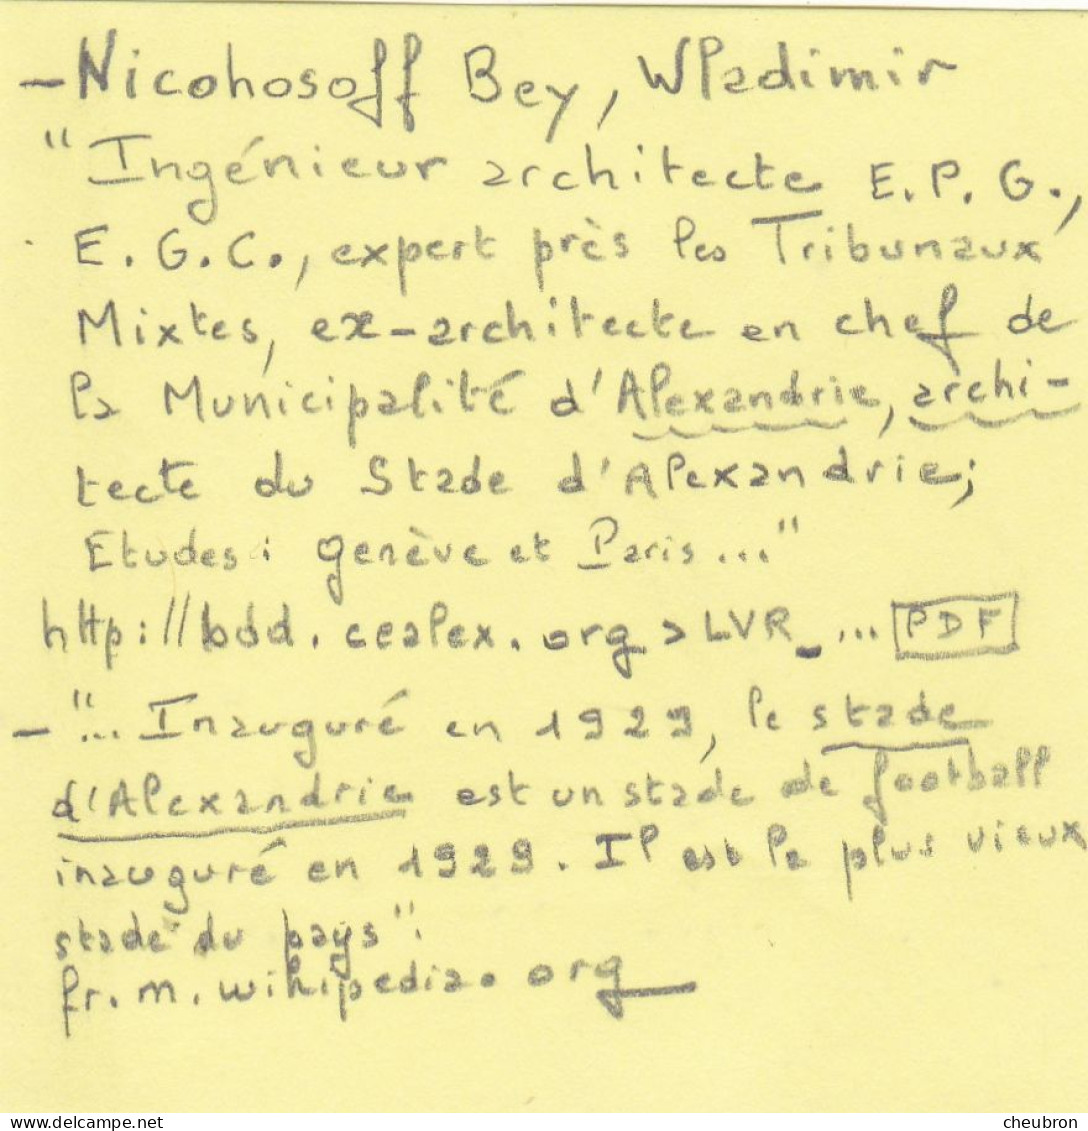 - Nicohosoff Bey, Wladimir
"Ingénieur architecte E.P.G.,
E.G.C., expert près les Tribunaux
Mixtes, ex-architecte en chef de
la Municipalité d'Alexandrie, archi-
tecte du Stade d'Alexandrie;
Etudes : genève et Paris..."
http://bdd.cealex.org > LVR_... PDF
- "... Inauguré en 1929, le stade
d'Alexandrie est un stade de football
inauguré en 1929. Il est le plus vieux
stade du pays".
fr.m.wikipedia.org
delcampe.net
cheubron